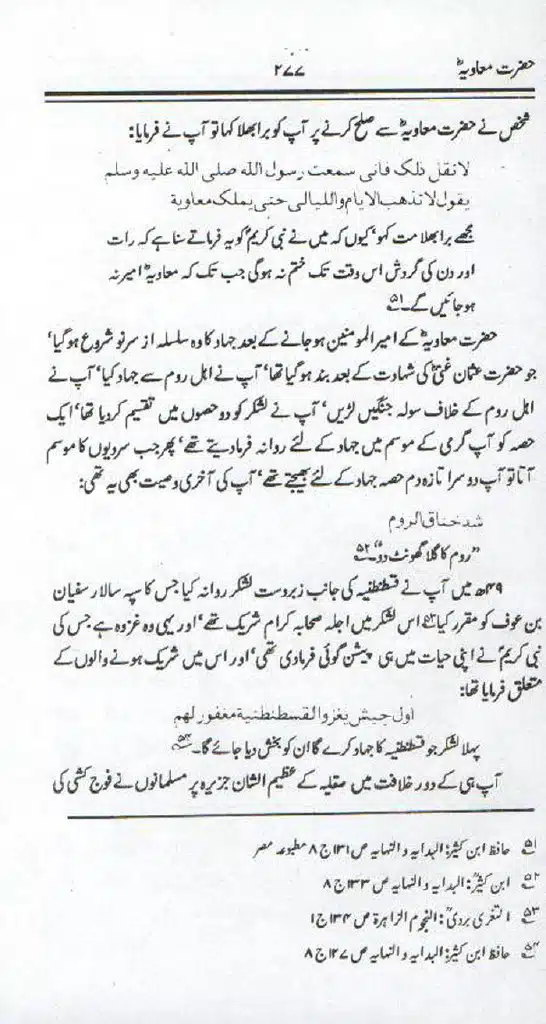 حضرت معاویہؓ ۲۷۷
شخص نے حضرت معاویہؓ سے صلح کرنے پر آپ کو برا بھلا کہا تو آپ نے فرمایا:
لا تقل ذلک فانی سمعت رسول الله صلی الله علیه وسلم
یقول لا تذهب الایام واللیالی حتی یملک معاویة
مجھے برا بھلا مت کہو‘ کیوں کہ میں نے نبی کریمؐ کو یہ فرماتے سنا ہے کہ رات
اور دن کی گردش اس وقت تک ختم نہ ہوگی جب تک کہ معاویہؓ امیر نہ
ہو جائیں گے۔۵۱
حضرت معاویہؓ کے امیرالمومنین ہو جانے کے بعد جہاد کا وہ سلسلہ از سر نو شروع ہو گیا‘
جو حضرت عثمان غنیؓ کی شہادت کے بعد بند ہو گیا تھا‘ آپ نے اہل روم سے جہاد کیا‘ آپ نے
اہل روم کے خلاف سولہ جنگیں لڑیں‘ آپ نے لشکر کو دو حصوں میں تقسیم کر دیا تھا‘ ایک
حصہ کو آپ گرمی کے موسم میں جہاد کے لئے روانہ فرما دیتے تھے‘ پھر جب سردیوں کا موسم
آتا تو آپ دوسرا تازہ دم حصہ جہاد کے لئے بھیجتے تھے‘ آپ کی آخری وصیت بھی یہ تھی:
شد خناق الروم
”روم کا گلا گھونٹ دو“۵۲
۴۹ھ میں آپ نے قسطنطنیہ کی جانب زبردست لشکر روانہ کیا جس کا سپہ سالار سفیان
بن عوف کو مقرر کیا۵۳ اس لشکر میں اجلہ صحابہ کرام شریک تھے‘ اور یہی وہ غزوہ ہے جس کی
نبی کریمؐ نے اپنی حیات میں ہی پیشن گوئی فرما دی تھی‘ اور اس میں شریک ہونے والوں کے
متعلق فرمایا تھا:
اول جیش یغزوا القسطنطنیة مغفور لهم
پہلا لشکر جو قسطنطنیہ کا جہاد کرے گا ان کو بخش دیا جائے گا۔۵۴
آپ ہی کے دور خلافت میں صقلیہ کے عظیم الشان جزیرہ پر مسلمانوں نے فوج کشی کی
۵۱ حافظ ابن کثیرؒ: البدایہ و النہایہ ص ۱۳۱ ج ۸ مطبوعہ مصر
۵۲ ابن کثیرؒ: البدایہ و النہایہ ص ۱۳۳ ج ۸
۵۳ التغری بردیؒ: النجوم الزاہرۃ ص ۱۳۴ ج ۱
۵۴ حافظ ابن کثیرؒ: البدایہ و النہایہ ص ۱۲۷ ج ۸